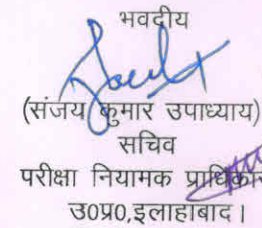 भवदीय
(संजय कुमार उपाध्याय)
सचिव
परीक्षा नियामक
उ०प्र०,इलाहाबाद।